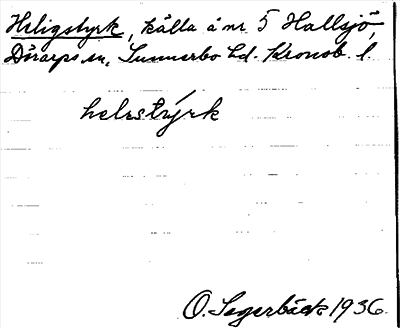 Heligstyrk, källa å nr 5 Hallsjö,
Dörarps sn, Sunnerbo hd. Kronob. l.
helestyrk
O. Segerbäck 1936.